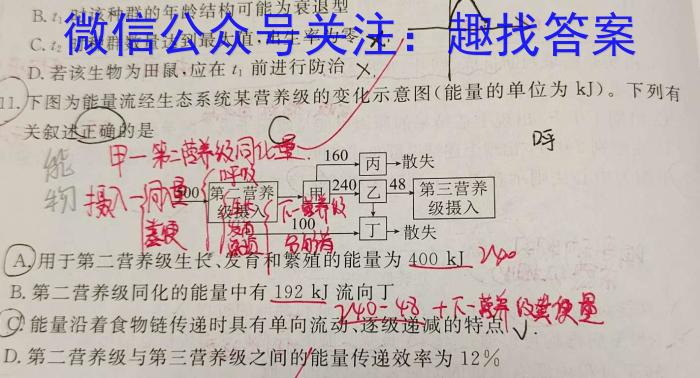 B. t₁ 时该种群的年龄结构可能为衰退型
微信公众号关注：趣找答案
D. 若该生物为田鼠,应在 t₁ 前进行防治 ×
11. 下图为能量流经生态系统某营养级的变化示意图(能量的单位为 kJ)。下列有
关叙述正确的是
C
呼
能
物
甲一第二营养级同化量
摄入一同化量
粪便
呼吸
下一营养级
第二营养级摄入
甲
160
丙
散失
240
乙
48
第三营养级摄入
100
丁
散失
A. 用于第二营养级生长、发育和繁殖的能量为 400 kJ 240
B. 第二营养级同化的能量中有 192 kJ 流向丁
240-48 +下一营养级粪便量
C. 能量沿着食物链传递时具有单向流动、逐级递减的特点 √
D. 第二营养级与第三营养级之间的能量传递效率为 12%